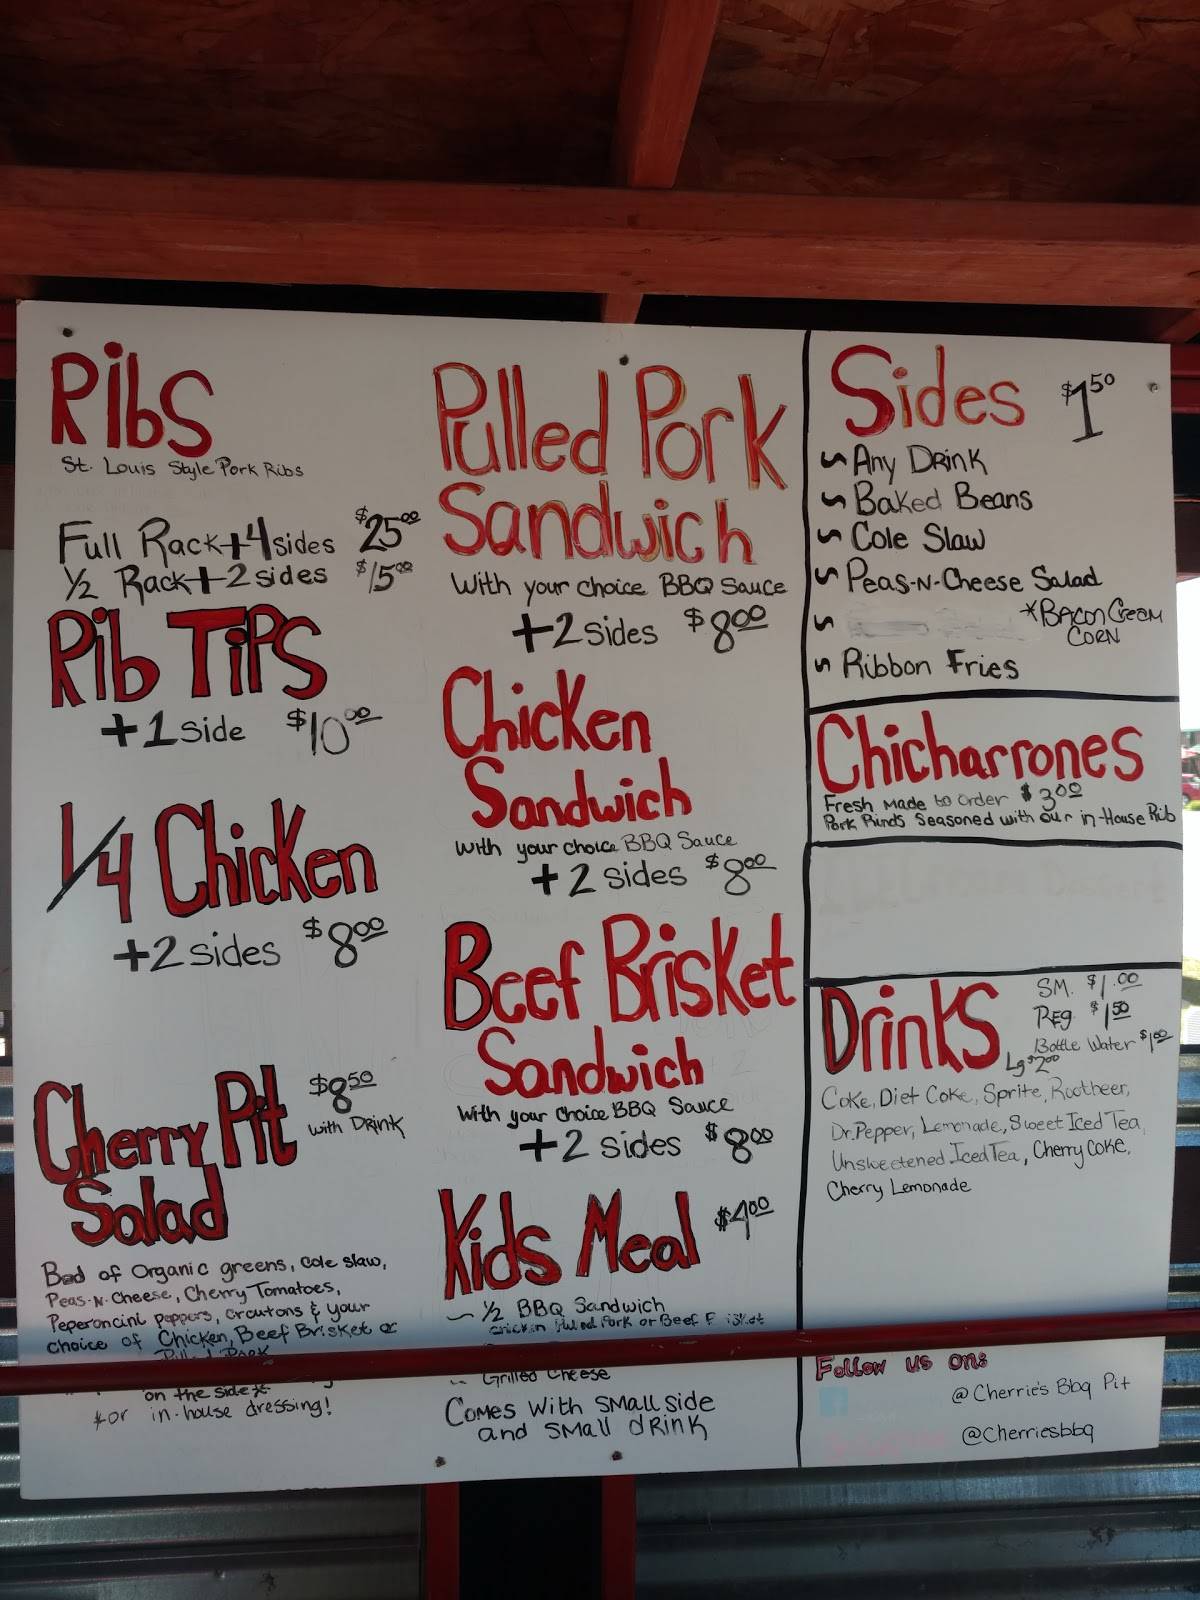 Ribs
St. Louis Style Pork Ribs
Full Rack + 4 sides $25.00
1/2 Rack + 2 sides $15.00
Rib Tips
+ 1 side $10.00
1/4 Chicken
+ 2 sides $8.00
Cherry Pit
Salad
$8.50
with Drink
Bed of Organic greens, cole slaw,
Peas-N-Cheese, Cherry Tomatoes,
Peperoncini peppers, croutons & your
choice of Chicken, Beef Brisket or
Pulled Pork
on the side
*or in-house dressing!
Pulled Pork
Sandwich
With your choice BBQ Sauce
+ 2 sides $8.00
Chicken
Sandwich
with your choice BBQ Sauce
+ 2 sides $8.00
Beef Brisket
Sandwich
With your choice BBQ Sauce
+ 2 sides $8.00
Kids Meal $4.00
~ 1/2 BBQ Sandwich
Chicken Pulled Pork or Beef Brisket
Grilled Cheese
Comes with small side
and small drink
Sides $1.50
~ Any Drink
~ Baked Beans
~ Cole Slaw
~ Peas-N-Cheese Salad
~ *Bacon Cream
Corn
~ Ribbon Fries
Chicharrones
Fresh made to order $3.00
Pork Rinds Seasoned with our in-House Rib
Drinks
SM. $1.00
Reg $1.50
Bottle Water $1.00
Lg $2.00
Coke, Diet Coke, Sprite, Rootbeer,
Dr. Pepper, Lemonade, Sweet Iced Tea,
Unsweetened Iced Tea, Cherry Coke,
Cherry Lemonade
Follow us on:
@Cherrie's Bbq Pit
@Cherriesbbq